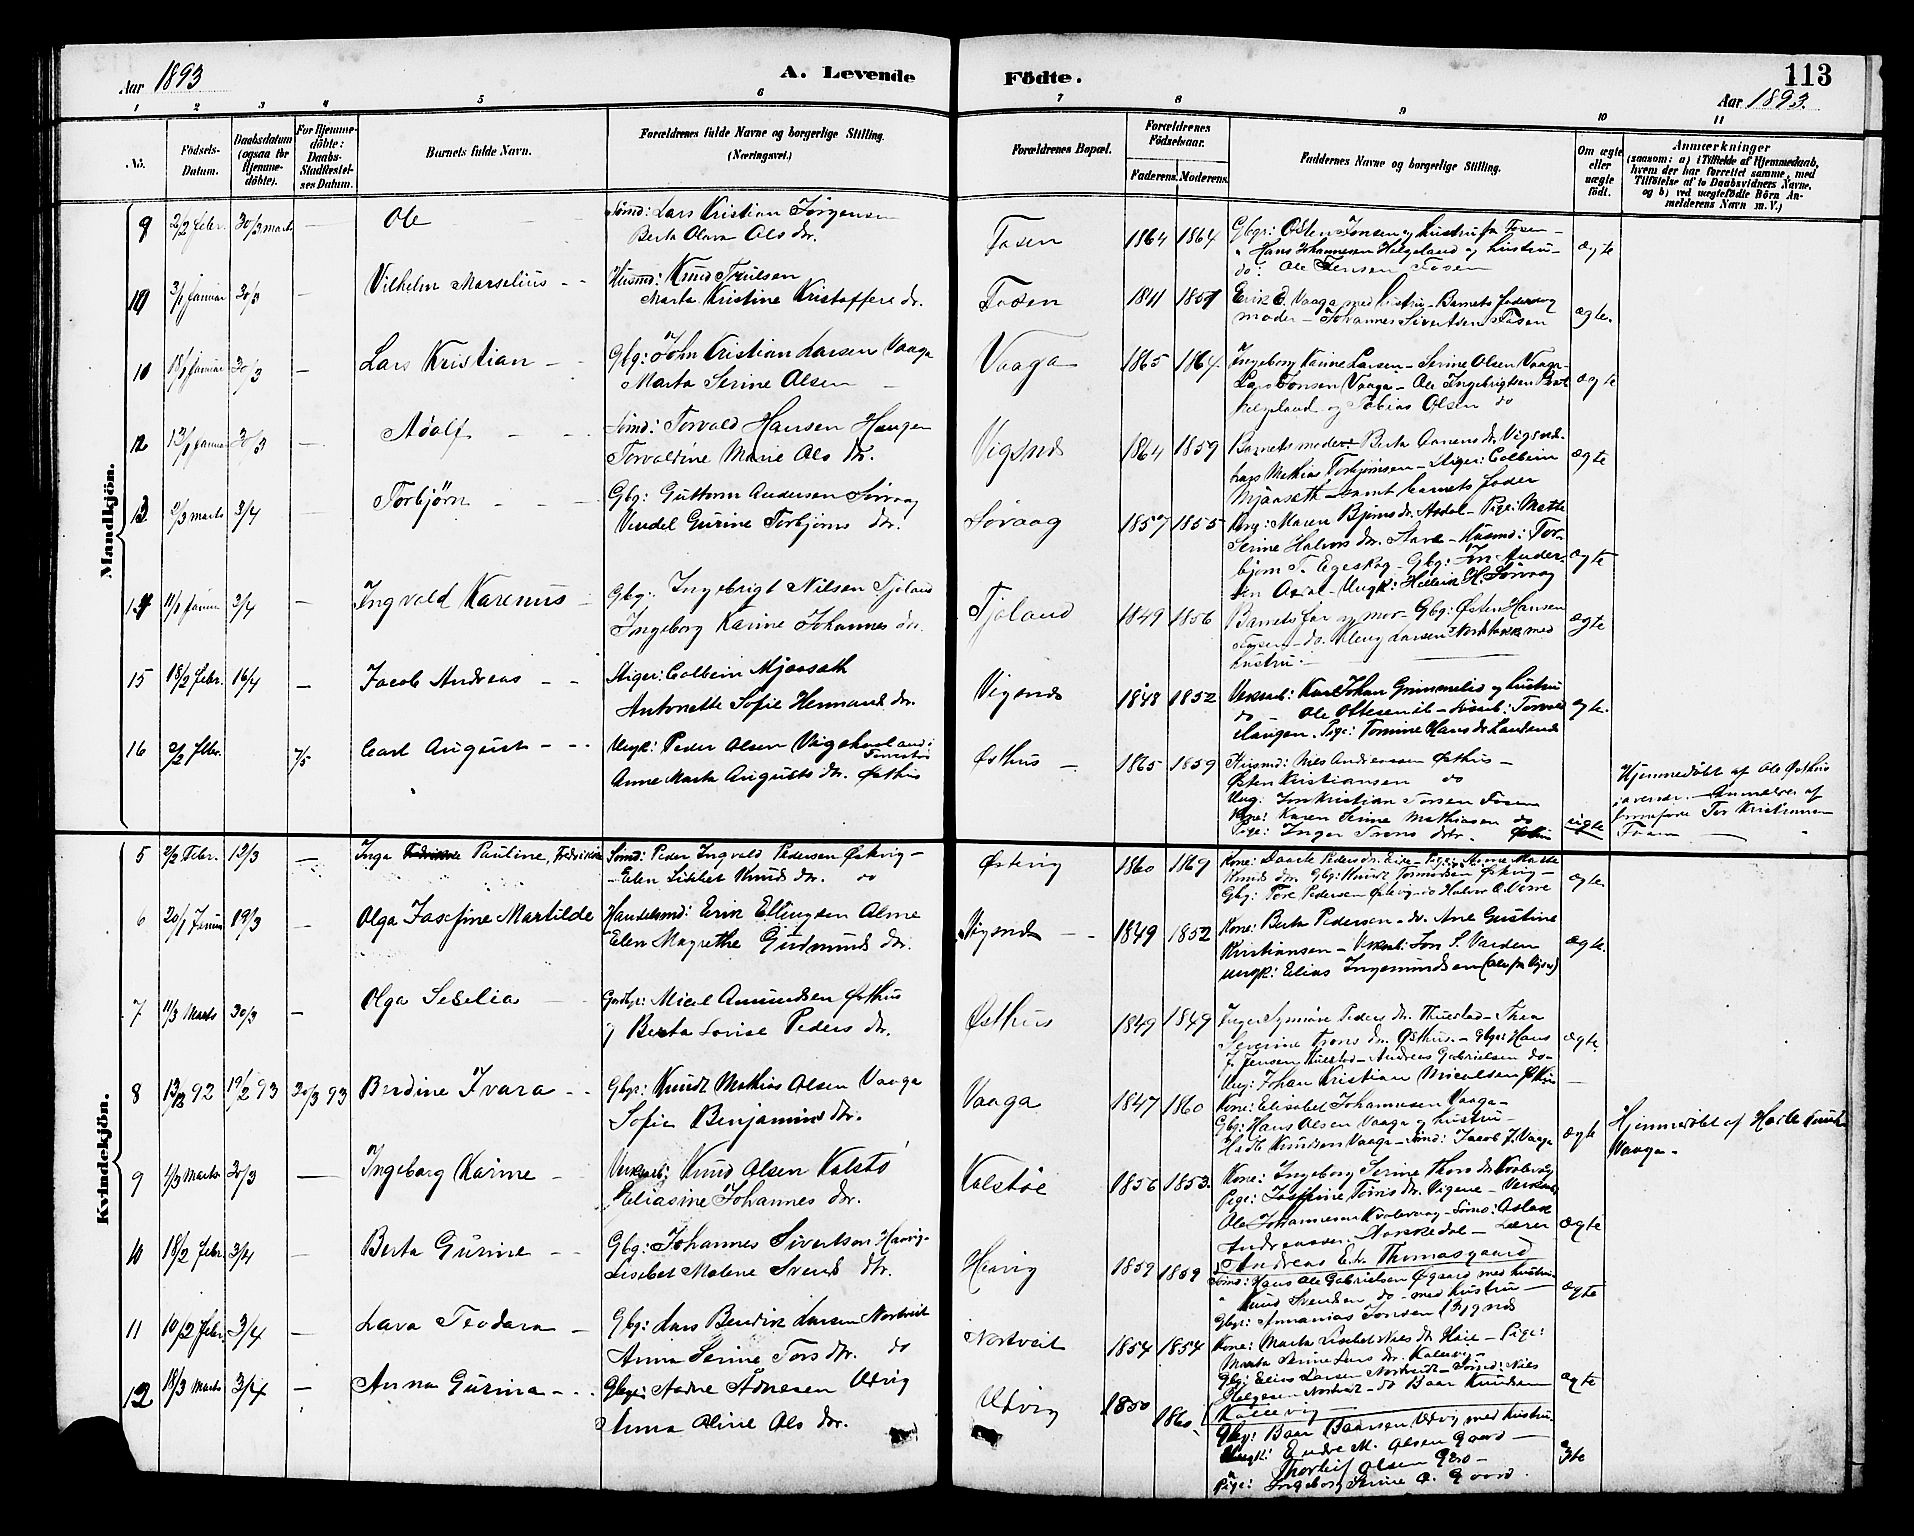 Aar 1893
A. Levende
Fødte.
113
Aar 1893.
1 2 3 4 5 6 7 8 9 10 11
No.
Fødsels-
Datum.
Daabsdatum
(ogsaa for
Hjemme-
døbte).
For Hjemme-
døbte:
Daabs-
Stadfæstel-
ses Datum.
Barnets fulde Navn.
Forældrenes fulde Navne og borgerlige Stilling.
(Næringsvei.)
Forældrenes Bopæl.
Forældrenes
Fødselsaar.
Faderens. Moderens.
Faddernes Navne og borgerlige Stilling.
Om ægte
eller
uægte
født.
Anmærkninger
(saasom: a) i Tilfælde af Hjemmedaab,
hvem der har forrettet samme, med
Tilføielse af to Daabsvidners Navne,
og b) ved uægtefødte Børn An-
melderens Navn m. V.)
Mandkjøn.
9 2/2 Febr. 30/3 marts — Ole
Sømd: Lars Kristian Jørgensen
Berta Olava Ols dr.
Fosen 1864 1864
Gbgr: Osten Jonsen og hustru fra Fosen –
" Hans Johannesen Helgeland og hustru –
do: Ole Jensen Fosen
ægte
10 3/1 Januar 30/3 — Vilhelm Marselius
Husmd: Knud Trulsen
Marta Kristine Kristoffers dr.
Fosen 1841 1851
Erik E. Vaaga med hustru – Barnets fader og
moder – Johannes Sivertsen Fosen
ægte.
10 18/1 Januar 30/3 — Lars Kristian
Gbg: John Kristian Larsen Vaaga
Marta Serine Olsen
Vaaga 1865 1864.
Ingeborg Karine Larsen – Serine Olsen Vaaga –
Lars Tonsen Vaaga – Ole Ingebrigtsen
Helgeland og Tobias Olsen do
ægte
12 13/1 Januar 30/3 — Adolf
Sømd: Torvald Hansen Haugen
Torvaldine Marie Ols dr.
Vigsnes 1864 1859
Barnets moder – Berta Aanens dr. Vigsnes –
Mathias Torbjørnsen – Stiger: Colbein
Mjaaseth – samt barnets fader
ægte
13 2/3 marts 3/4 Torbjørn
Gbg: Guttorm Andersen Sørvaag
Vendel Gurine Torbjørns dr.
Sørvaag 1857 1855
Kone: Maren Bjørns dr. Aadal – Pige: Mette
Serine Halvors dr. Aare – Husmd: Tor-
bjørn T. Egeskog – Gbg: Jon Ander-
sen Aadal – Ungk: Hellik H. Sørvaag
ægte
14 11/1 Januar 3/4 — Ingvald Karenus
Gbg: Ingebrigt Nilsen Tjoland
Ingeborg Karine Johannes dr.
Tjoland 1849 1856
Barnets far og mor – Gbg: Østen Hansen
Fosen – do. Elling Larsen med
hustru.
ægte
15 18/2 Febr. 16/4 — Jacob Andreas
Stiger: Colbein Mjaaseth
Antonette Sofie Hermands dr.
Vigsnes 1848 1852
Verksarb: Karl Johan Grimmelid og hustru
do – Ole Ottesen – Torvald
Haugen. Pige: Tomine Hans dr.
ægte.
16 2/2 Febr. 7/5 Carl August
Ungk: Peder Olsen Vigshovland:
Anne Marta Augusts dr. Østhus
Østhus – 1865 1859
Husmd: Nils Andreasen Østhus –
Østen Kristiansen do
Ung: Jon Kristian Torsen Fosen
Kone: Karen Serine Mathiasen do
Pige: Inger Trons dr. Østhus
uægte
Hjemmedøbt af Ole Østhus
Anmeldes af
Tor Kristiansen
Fosen
Kvindekjøn.
5 2/2 Febr. 12/3 — Inga Pauline, Fredrikke
Sømd: Peder Ingvald Pedersen Østevig –
– Elen Lisbet Knuds dr. do
Østevig 1860 1869
Kone: Daarte Peders dr. Eide – Pige: Anne Marte
Knuds dr. Gbg: Knud Tormodsen Østevig –
Gbg: Tore Pedersen Østevig – do Halvor O. Visve
ægte.
6 20/1 Januar 19/3 Olga Josefine Martilde
Handelsmd: Erik Ellingsen Alme
Elen Magrethe Gudmunds dr.
Vigsnes 1849 1852
Kone: Berta Pedersen – do. Ane Gustine
Kristiansen – Verksarb: Jon S. Varden
Ungk: Elias Ingemundsen (Alle fra Vigsnes)
ægte.
7 11/3 Marts 30/3 — Olga Seselia
Gaardbgr: Micel Amundsen Østhus
og Berta Lovise Peders dr.
Østhus 1849 1849
Inger Synnøve Peders dr. Thuestad – Thea
Severine Trons dr. Østhus. – Gbgr: Hans
J. Jensen Thuestad – Andreas Gabrielsen do –
Ung: Johan Kristian Micalsen Østhus
ægte.
8 13/12 92 19/2 93 30/3 93 Berdine Ivara
Gbgr: Knudt Mathias Olsen Vaaga
Sofie Benjamins dr.
Vaaga 1847 1860
Kone: Elisabet Johannesen Vaaga –
Gbg: Hans Olsen Vaaga og hustru –
Hadle Knudsen Vaaga – Sømd: Jacob J. Vaaga
ægte
Hjemmedøbt af Hadle Knuts.
Vaaga –
9 1/3 Marts 30/3 — Ingeborg Karine
Verksarb: Knud Olsen Kalstø
Eliasine Johannes dr.
Kalstøe 1856 1853.
Kone: Ingeborg Serine Thors dr. Kvalevaag
Pige: Josefine Tørris dr. Vigene – Verksarb:
Ole Johannesen Kvalevaag – Sømd: Aslak
Andreassen Norskedal – Lærer
Andreas E. Thomasgaard
ægte
10 18/2 Febr 3/4 — Berta Gurine
Gbg: Johannes Sivertsen Haavig –
Lisebet Malene Svends dr.
Høvig 1859 1859
Sømd: Hans Ole Gabrielsen Øygaard med hustru.
" Knud Svendsen do – med hustru –
Gbgr: Annanias Jonsen Bygnes
ægte
11 10/2 Febr. 3/4 — Lava Teodara
Gbg: Lars Bendik Larsen Nortveit
Anna Serine Tors dr. do
Nortveit 1854 1854
Kone: Marta Lisebet Nils dr. Høie – Pige:
Marta Serine Lars dr. Kallevig –
Gbg: Elias Larsen Nortveit – Sømd: Nils
Helgesen Nortveit – do Baar Knudsen
Kallevig –
ægte
12 18/3 Marts 3/4 — Anna Gurina
Gbgr: Aadne Adnesen Udvig
Anna Oline Ols dr.
Udvig 1850 1860.
Gbg: Baar Baarsen Udvig med hustru.
Ungk: Endre M. Olsen Gaard –
Thorleif Olsen Gro –
Pige: Ingeborg Serine O. Gaard.